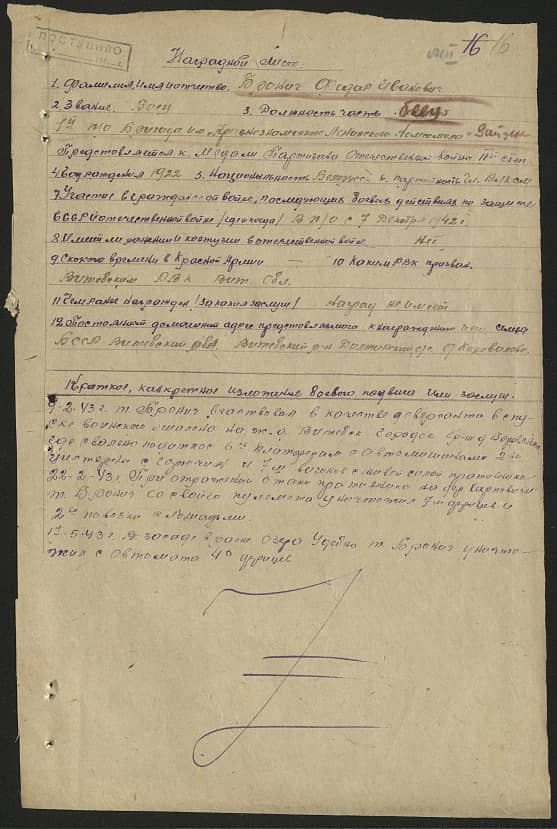 ПОСТУПИЛО
16
Наградной лист.
1. Фамилия, имя и отчество. Бронич Федар Иванович
2 Звание. Боец 3. Должность часть боец
1й п/о Бригада им. Краснознаменного Ленинского Комсомола
Представляется к Медали Партизана Отечественной войны II ст.
4. Год рождения 1922 5. Национальность Белорус 6. Партийность Чл. ВЛКСМ
7 Участие в гражданской войне, последующих боевых действиях по защите
СССР и отечественной войне (где и когда) В п/о с 7 Декабря 1942 г
8. Имеет ли ранения и контузии в отечественной войне Нет
9 Скокого времени в Красной Армии — 10 Каким РВК призван.
Витебским РВК Вит. Обл.
11 Чем ранее награжден (за какие заслуги) Наград не имеет
12 Постоянный домашний адрес представляемого к награждению или семьи
БССР Витебский Витебский р-н с/с
Краткое, конкретное изложение боевого подвига или заслуг.
9-2-43 г. т. Бронич участвовал в качестве диверсанта в спу-
ске воинского эшелона на ж.д. Витебск Городок
где свалено под откос 6ть платформ с автомашинами 2 е
цистерны с горючим и 7 м вагонов с живой силой противника
22-2-43 г. При отражении атаки противника на
т. Бронич со своего пулемета уничтожил 7 м фрицев и
2 е повозки с лошадями.
5-43 г. В засаде в районе Озера т. Бронич уничто-
жил с автомата 4 фрицев